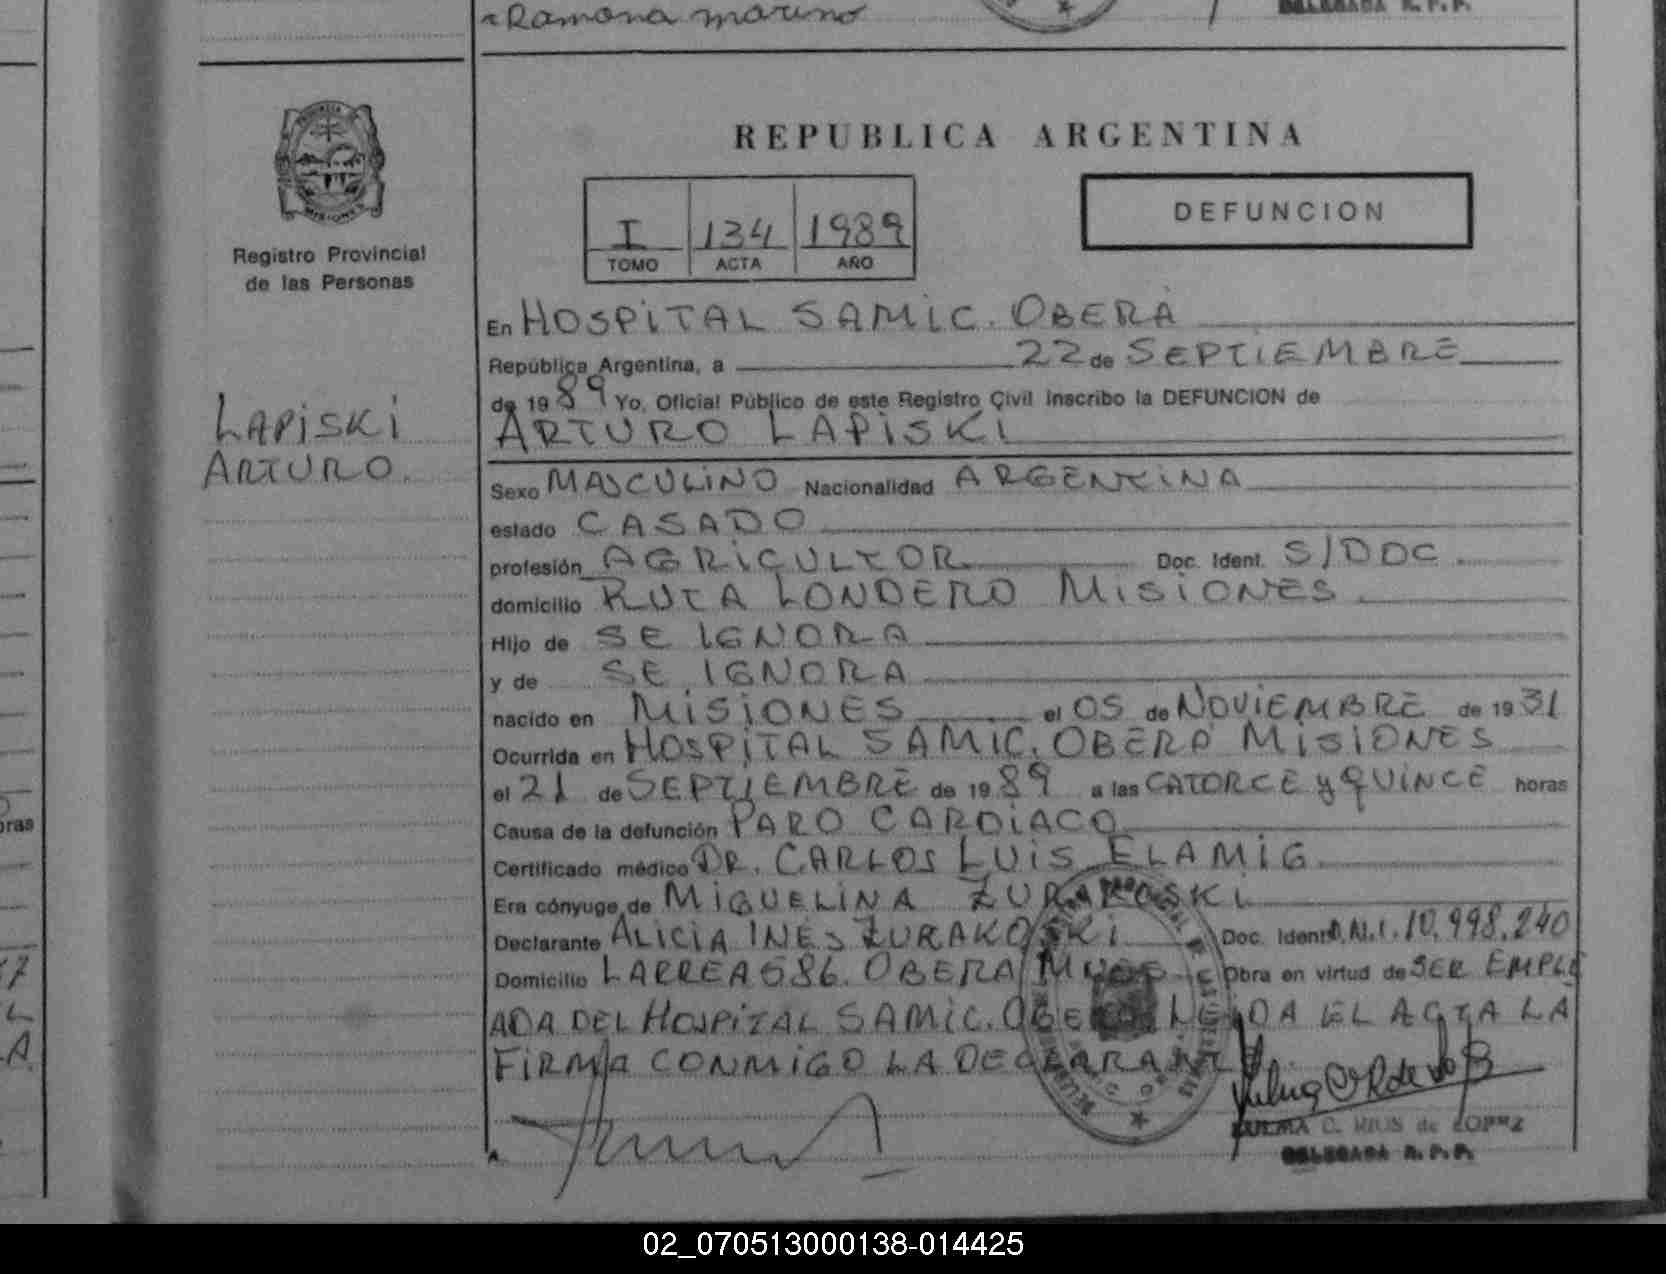 Ramona marino
DELEGADA R.P.P.
PROVINCIA
MISIONES
Registro Provincial
de las Personas
LAPISKI
ARTURO.
REPUBLICA ARGENTINA
I 134 1989
TOMO ACTA AÑO
DEFUNCION
En HOSPITAL SAMIC. OBERÁ
República Argentina, a 22 de SEPTIEMBRE
de 1989 Yo, Oficial Público de este Registro Civil inscribo la DEFUNCION de
ARTURO LAPISKI
Sexo MASCULINO Nacionalidad ARGENTINA
estado CASADO
profesión AGRICULTOR Doc. Ident. S/DOC
domicilio RUTA LONDERO MISIONES.
Hijo de SE IGNORA
y de SE IGNORA
nacido en MISIONES el 05 de NOVIEMBRE de 1931
Ocurrida en HOSPITAL SAMIC. OBERÁ MISIONES
el 21 de SEPTIEMBRE de 1989 a las CATORCE y QUINCE horas
Causa de la defunción PARO CARDIACO
Certificado médico DR. CARLOS LUIS ELAMIG
Era cónyuge de MIGUELINA ZURAKOSKI
Declarante ALICIA INES ZURAKOSKI Doc. Ident. D.N.I. 10.998.240
Domicilio LARREA 586. OBERA Obra en virtud de SER EMPLE
ADA DEL HOSPITAL SAMIC. OBERA LEIDA EL ACTA LA
FIRMA CONMIGO LA DECLARANTE
ZULMA C. RIOS de LOPEZ
DELEGADA R.P.P.
02_070513000138-014425